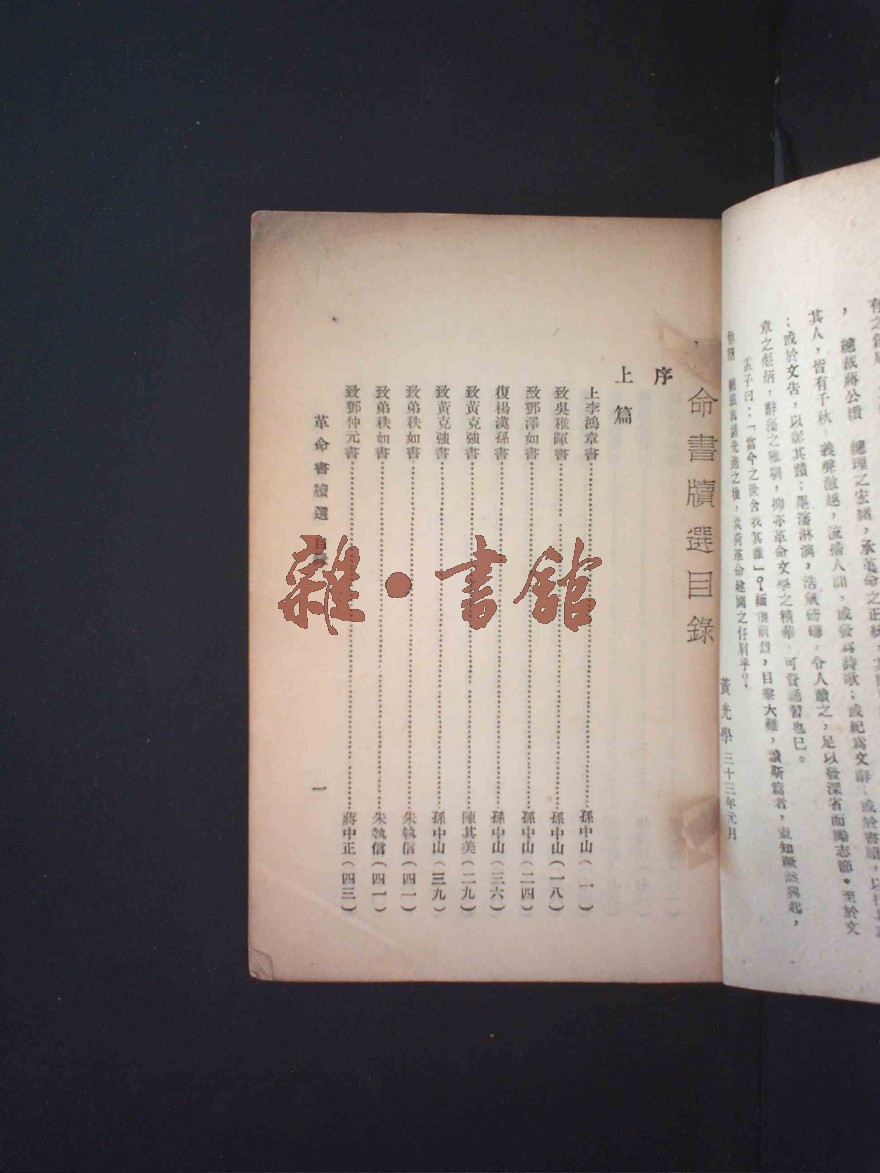 總裁蔣公續　總理之宏緒，承革命之正統，其
其人，皆有千秋，義聲激越，流播人間，或發爲詩歌；或紀爲文辭；或於書牘，以
；或於文告，以彰其蹟；墨瀋淋漓，浩氣磅礡，令人讀之，足以發深省而勵志節。至於文
章之彪炳，辭藻之雅馴，抑亦革命文學之精華，可資誦習也已。
孟子曰：「當今之世舍我其誰」？緬懷前烈，目擊大難，讀斯篇者，當知
先進之後，其荷革命建國之仔肩乎？
黃光學 三十三年元月
命書牘選目錄
序
上篇
上李鴻章書……孫中山(一)
致吳稚暉書……孫中山(一八)
致鄧澤如書……孫中山(二四)
復楊漢孫書……孫中山(三六)
致黃克強書……陳其美(二九)
致黃克強書……孫中山(三九)
致弟秩如書……朱執信(四一)
致弟秩如書……朱執信(四一)
致鄧仲元書……蔣中正(四三)
革命書牘選 目錄
一
雜·書館